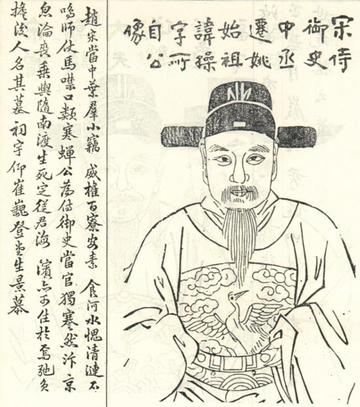 宋侍
御史
中丞
遷姚
始祖
諱璪
字所
自公
像
趙宋當中葉羣小竊威權百寮安素食河水愧清漣不
鳴師仗馬噤口類寒蟬公為侍御史當官獨蹇然汴京
忽淪喪乘輿隨南渡生死定從君海濱亦可住於焉弛負
擔後人名其墓祠宇仰崔巍登堂生景慕